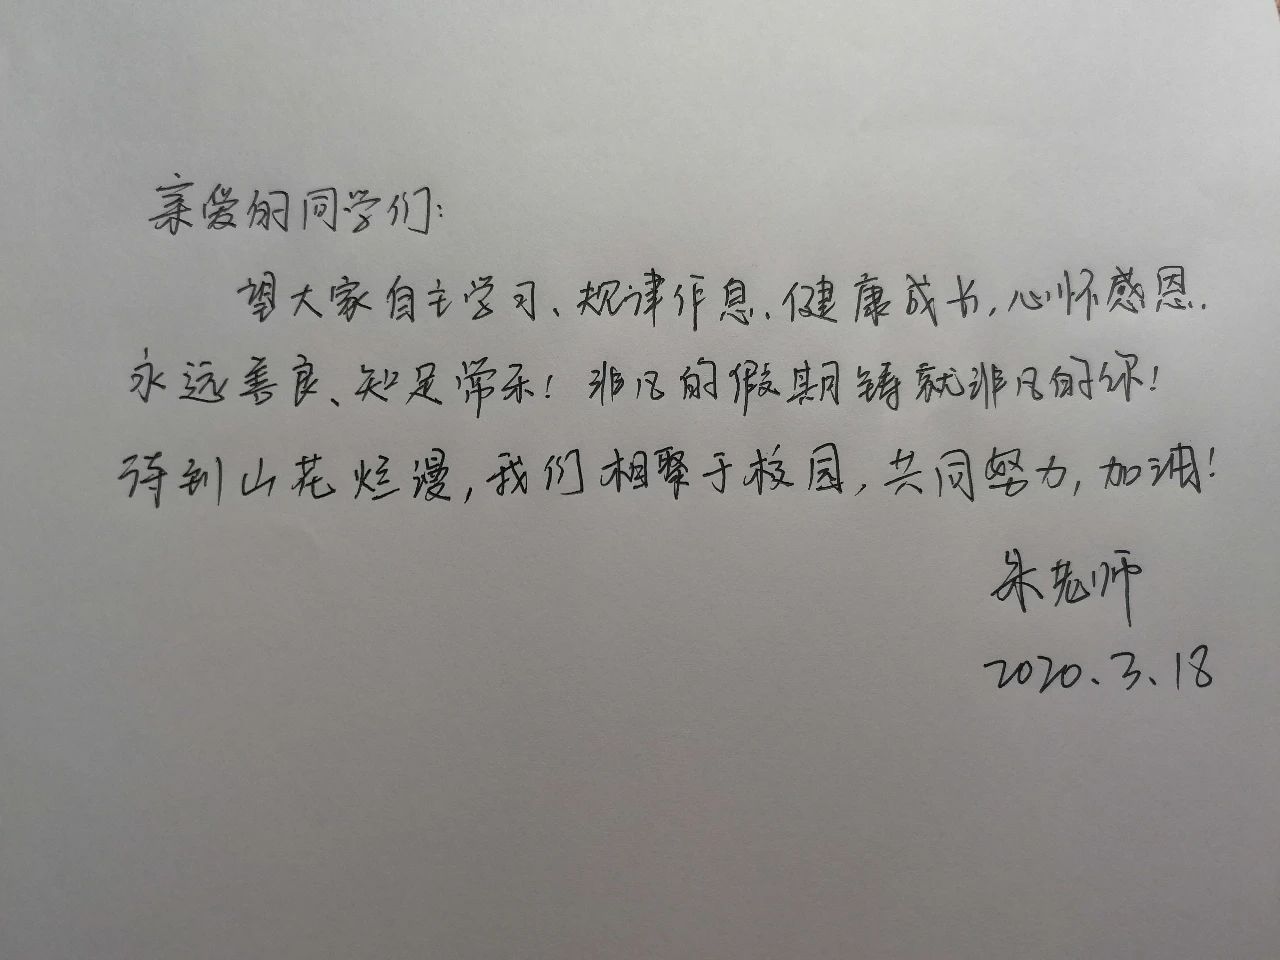 亲爱的同学们:
望大家自主学习、规律作息、健康成长,心怀感恩.
永远善良、知足常乐!非凡的假期铸就非凡的你!
待到山花烂漫,我们相聚于校园,共同努力,加油!
朱老师
2020.3.18